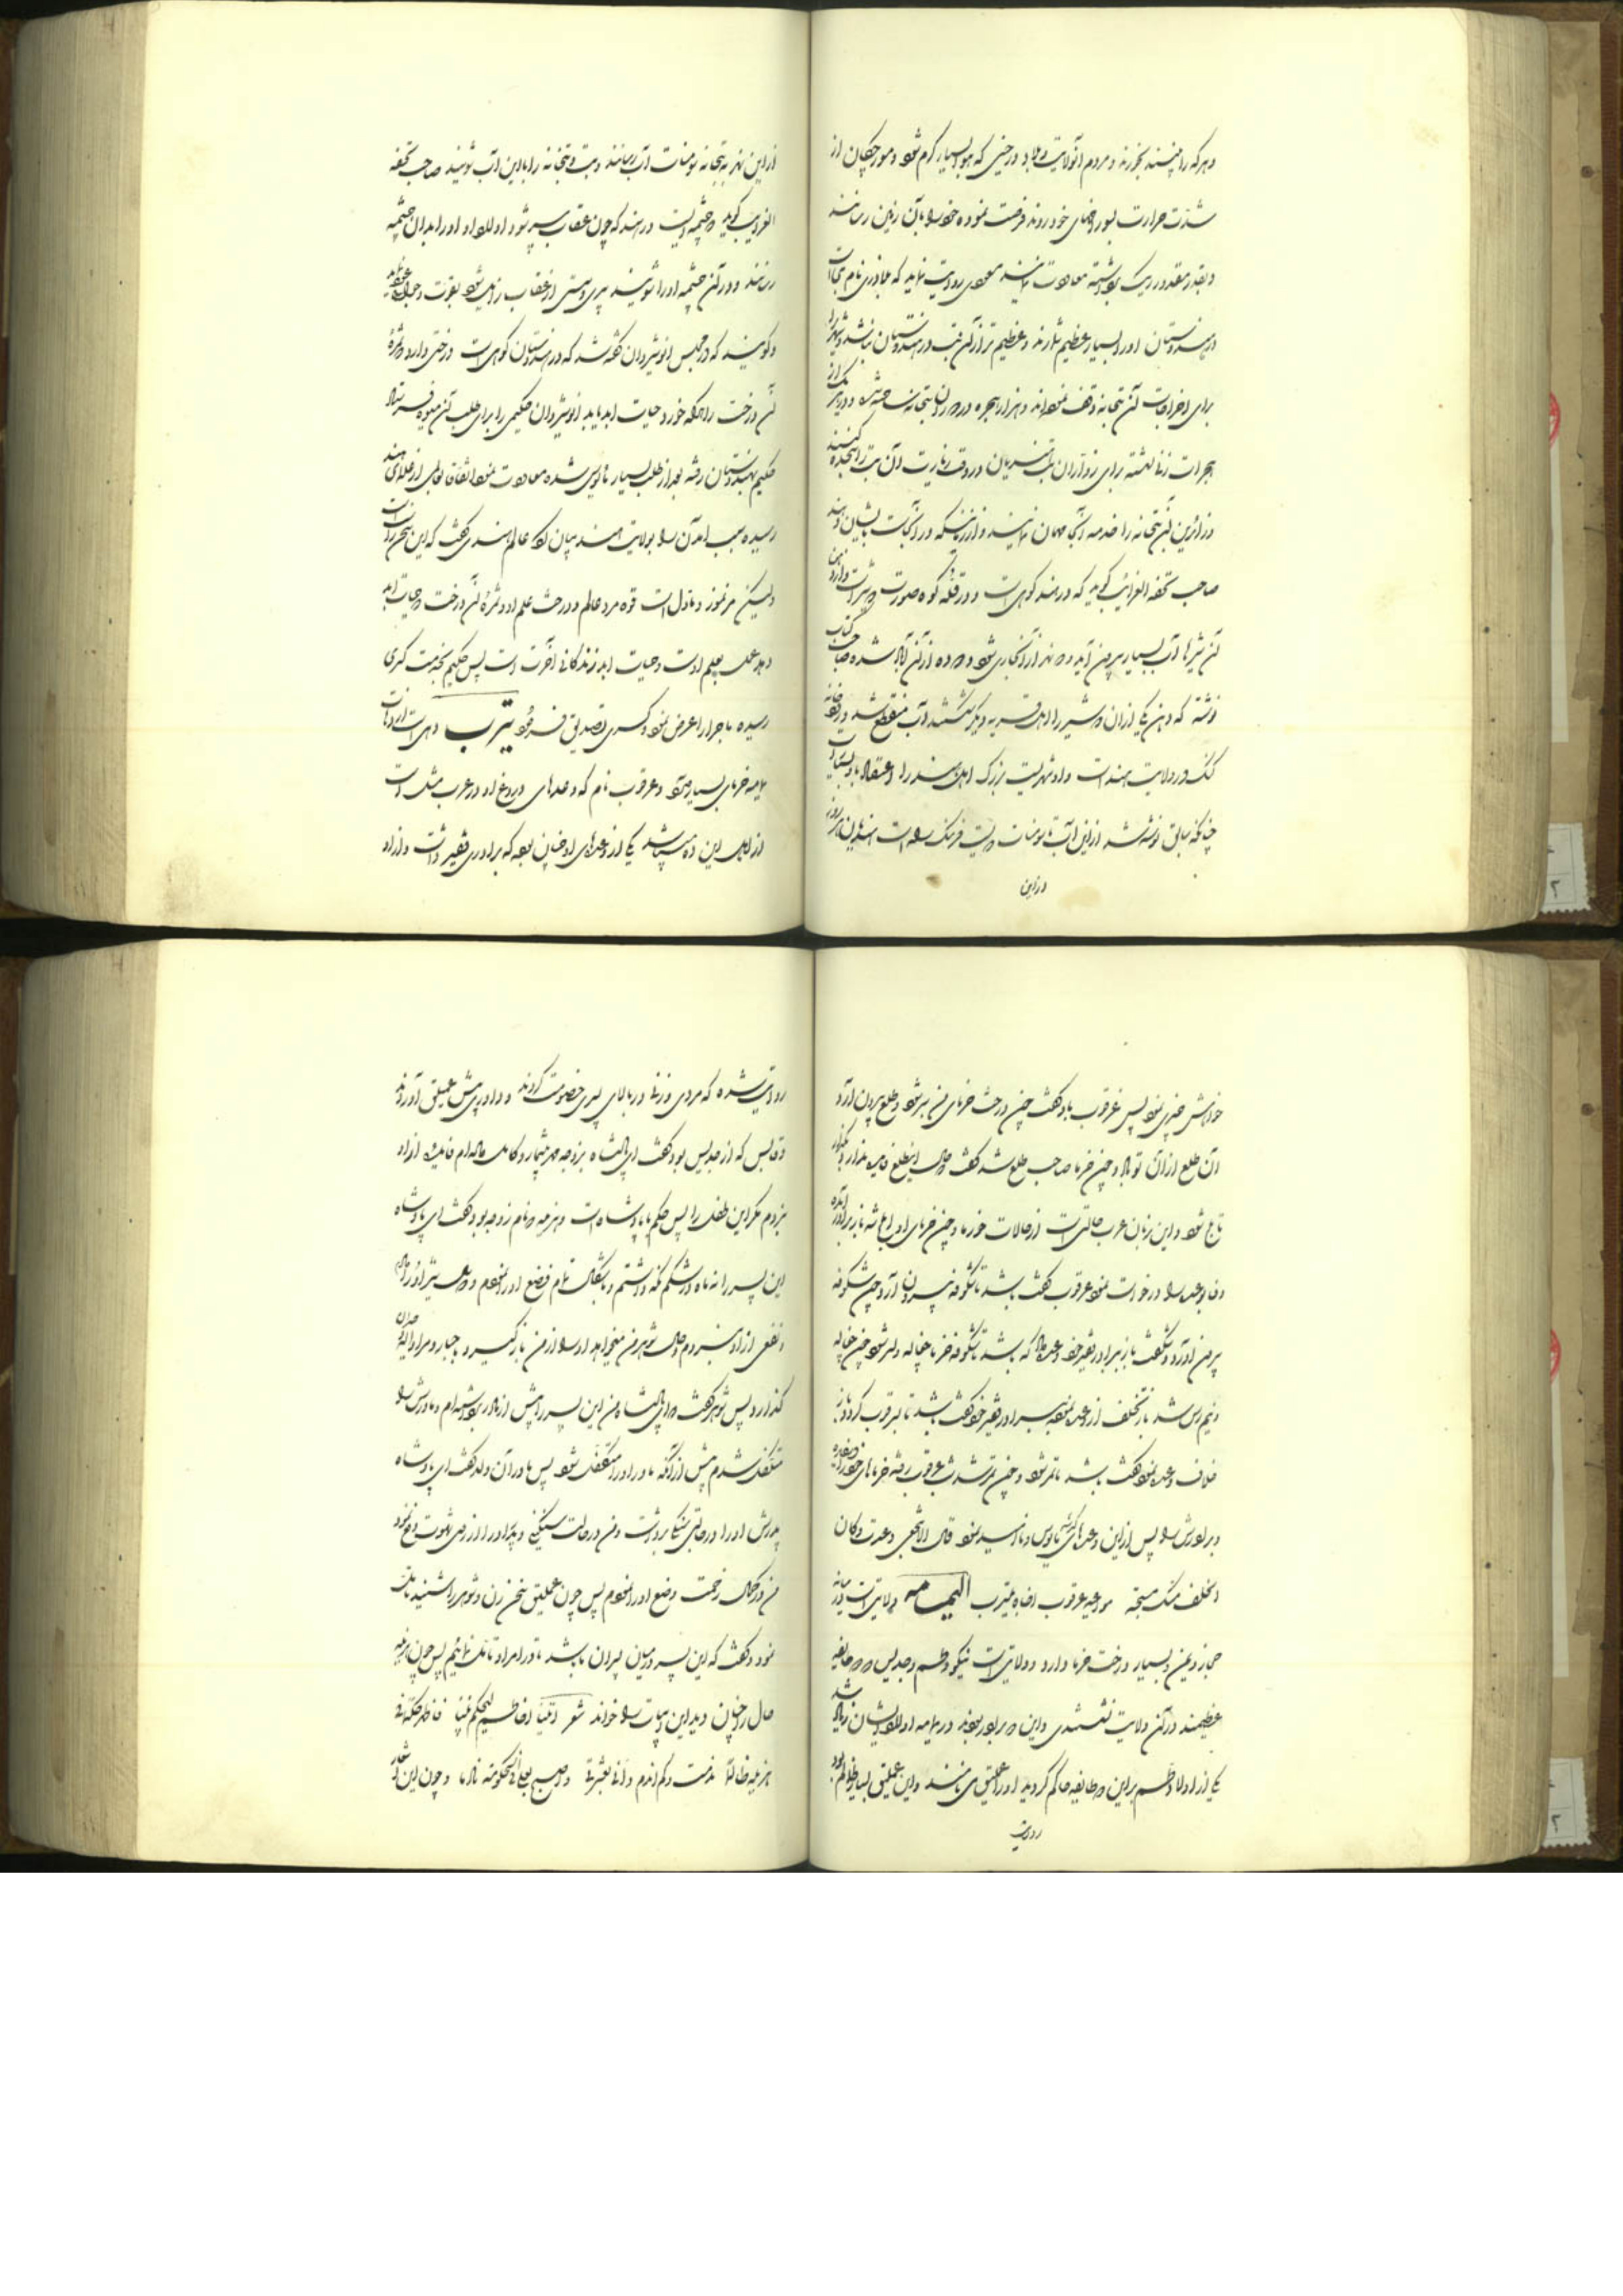 و هر که را بینند بخورند و مردم آنولایت و بلاد در حینی که هوا بسیار گرم شود و مورچکان از
شدت حرارت بسوراخهای خود روند فرصت نموده خود را بآن زمین رسانند
و بقدر مقدور ریک برداشته معاودت نمایند مسعودی روایت نماید که بلاذری نام بتی است
در هندوستان او را بسیار عظیم شمارند و عظیم‌تر از آن بت در هندوستان نباشد و شهرها
برای اخراجات آن بتخانه وقف نموده‌اند و هزار حجره در دور آن بتخانه ساخته شده و در هر یک از
حجرات زنی نشسته برای زواران بت
و زائرین آن بتخانه را خدمه آنجا مهمان نمایند و از زنانیکه در آنجاست بایشان دهند
صاحب تحفه الغرائب گوید که در هند کوهی است و در قله کوه صورت دو شیر است و از دهن
آن شیرها آب بسیار بیرون آید و دو نهر از آن جاری شود و دو ده از آن آباد شده صاحب کتاب
نوشته که دهن یکی از آن دو شیر را اهل قریه دیگر شکستند آب منقطع شد و رودخانه
کنک در ولایت هند است و او شهریست بزرک اهل هند را اعتقاد باو بسیار است
چنانکه سابق نوشته شد از این آب تا سومنات دویست فرسنک راه است هر روز
در این
از این نهر به بتخانه سومنات آب رسانند و بت و بتخانه را با این آب شویند صاحب تحفه
الغرایب گوید چشمه‌ایست در هند که چون عقاب پیر شود اولاد او او را بدان چشمه
رسانند و در آن چشمه او را شویند پیری و سستی از عقاب زایل شود بقوت و جوانی
و گویند که در مجلس انوشیروان گفته شد که در هندوستان کوهی است درختی دارد و ثمره
آن درخت را هر که خورد حیات ابد یابد انوشیروان حکیمی را برای طلب آن میوه فرستاد
حکیم بهندوستان رفته بعد از طلب بسیار مأیوس شده معاودت نمود اتفاقا بیکی از علمای هند
رسیده سبب آمدن را بولایت هند بیان کرد عالم هندی گفت که این سخن راست است
ولیکن مرموز و مأول است کوه مرد عالم و درخت علم او و ثمره آن درخت که حیات ابد
دهد عمل بعلم اوست و حیات ابد زندگانی آخرت است پس حکیم بخدمت کسری
رسیده ماجرا را عرض نمود کسری تصدیق فرمود یترب دهی است از دهات
یمامه خرمای بسیار دارد و عرقوب نام که وعده‌های دروغ او در عرب مثل است
از اهل این ده میباشد یکی از وعده‌های او چنان بوده که برادری فقیر داشت و از او
خواهش چیزی نمود پس عرقوب باو گفت چون درخت خرمای من سبز شود و طلع بیرون آرد
آن طلع از آن تو باد و چون خرما صاحب طلع شد گفت این طلع فایده ندارد بگذار
تا بلح شود و این بزبان عرب حالتی است از حالات خرما و چون خرمای او بلح شد باز برادر آمده
وفا بوعده را درخواست نمود عرقوب گفت باشد تا شکوفه بیرون آرد چون شکوفه
بیرون آورد و شکفت باز برادر فقیر خود وعده داد که باشد تا شکوفه خرما
و نیم‌رس شد باز تخلف از وعده نموده برادر فقیر خود گفت باشد تا رطب گردد باز
خلاف وعده نمود گفت باشد تا تمر شود و چون تمر شد شب عرقوب رفته خرماهای خود را
و برادرش را پس از این وعده‌ها مأیوس و ناامید نمود قال الاشجعی وعدت و کان
الخلف منک سجیة مواعید عرقوب اخاه بیترب الیمامه ولایتی است میانه
حجاز و یمن و بسیار درخت خرما دارد و ولایتی است نیکو و طسم و جدیس دو طایفه
عظیمند در آن ولایت نشستندی و این دو برادر بودند در یمامه اولاد ایشان زیاد شد
یکی از اولاد طسم بر این دو طایفه حاکم گردید او را عملیق می‌نامند و این عملیق بسیار ظالم بود
روایت
روایت شده که مردی و زنی در بالای پسری خصومت کردند و داوری پیش عملیق آوردند
و قابس که از جدیس بود گفت ای پادشاه بزوجه مهر بیشمار و کامل داده‌ام فایده از او
نبردم مگر این طفل را پس حکم با پادشاه است و هزیله نام زوجه بود گفت ای پادشاه
این پسر را نه ماه در شکم نگه داشتم و با مشقت تمام وضع او نمودم و شیر او را دادم
و نفعی از او نبردم حال شوهر من میخواهد او را از من باز گیرد بجبار و مرا
گذارد پس شوهر گفت ای پادشاه من این پسر را پیش از مادر برداشته‌ام و مادرش را
متکفل شدم پیش از آنکه مادر او را متکفل شود پس مادر آن ولد گفت ای پادشاه
پدرش او را در حالتی سبک برداشت و من در حالت سنگینی و پدر او را از روی شهوت وضع نمود
من در کمال زحمت وضع او را نمودم پس چون عملیق سخن زن و شوهر را شنید تأمل
نمود و گفت که این پسر در میان پسران ما باشد تا در امر او تأمل نمائیم پس چون هزیله
حال را چنان دید این ابیات را خواند شعر اتینا اخا طسم لیحکم بیننا فاظهر حکما فی
هزیلة ظالما ندمت و لم اندم و انی بعثرتی و اصبح بعلی فی الحکومة نادما و چون این اشعار